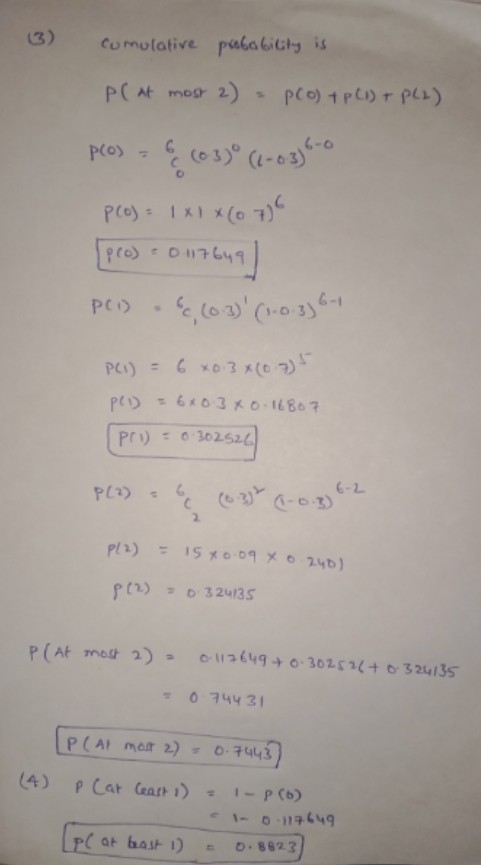 (3) Cumulative probability is
P( At most 2) = p(0) + p(1) + p(2)
p(0) = 6C0 (0.3)^0 (1-0.3)^6-0
p(0) = 1 x 1 x (0.7)^6
p(0) = 0.117649
P(1) = 6C1 (0.3)^1 (1-0.3)^6-1
P(1) = 6 x 0.3 x (0.7)^5
p(1) = 6 x 0.3 x 0.16807
p(1) = 0.302526
P(2) = 6C2 (0.3)^2 (1-0.3)^6-2
P(2) = 15 x 0.09 x 0.2401
P(2) = 0.324135
P (At most 2) = 0.117649 + 0.302526 + 0.324135
= 0.74431
P(At most 2) = 0.7443
(4) P (at least 1) = 1 - P(0)
= 1 - 0.117649
P( at least 1) = 0.8823